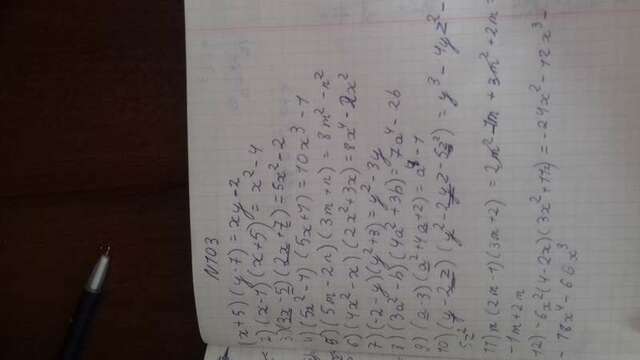 N703
(x+5)(y-7) = xy-2
2) (x-1)(x+5) = x²-4
3) (3x-5)(2x+7) = 5x²-2
4) (5x²-1)(5x+1) = 10x³-1
5) (5m-2n)(3m+n) = 8m²-n²
6) (4x²-x)(2x²+3x) = 8x⁴-2x²
7) (-2-y)(y+3) = y²-3y
8) (3a²-b)(4a²+3b) = 7a⁴-2b
9) (a-3)(a²+4a+2) = a³-1
10) (y-2z)(y²-2yz-5z²) = y³-4yz²-
5z²
11) m(2m-1)(3m+2) = 2m²-1m+3m²+2m=
-1m+2m
12) -6x²(4-2x)(3x²+11) = -24x²-12x³-
78x⁴-66x³